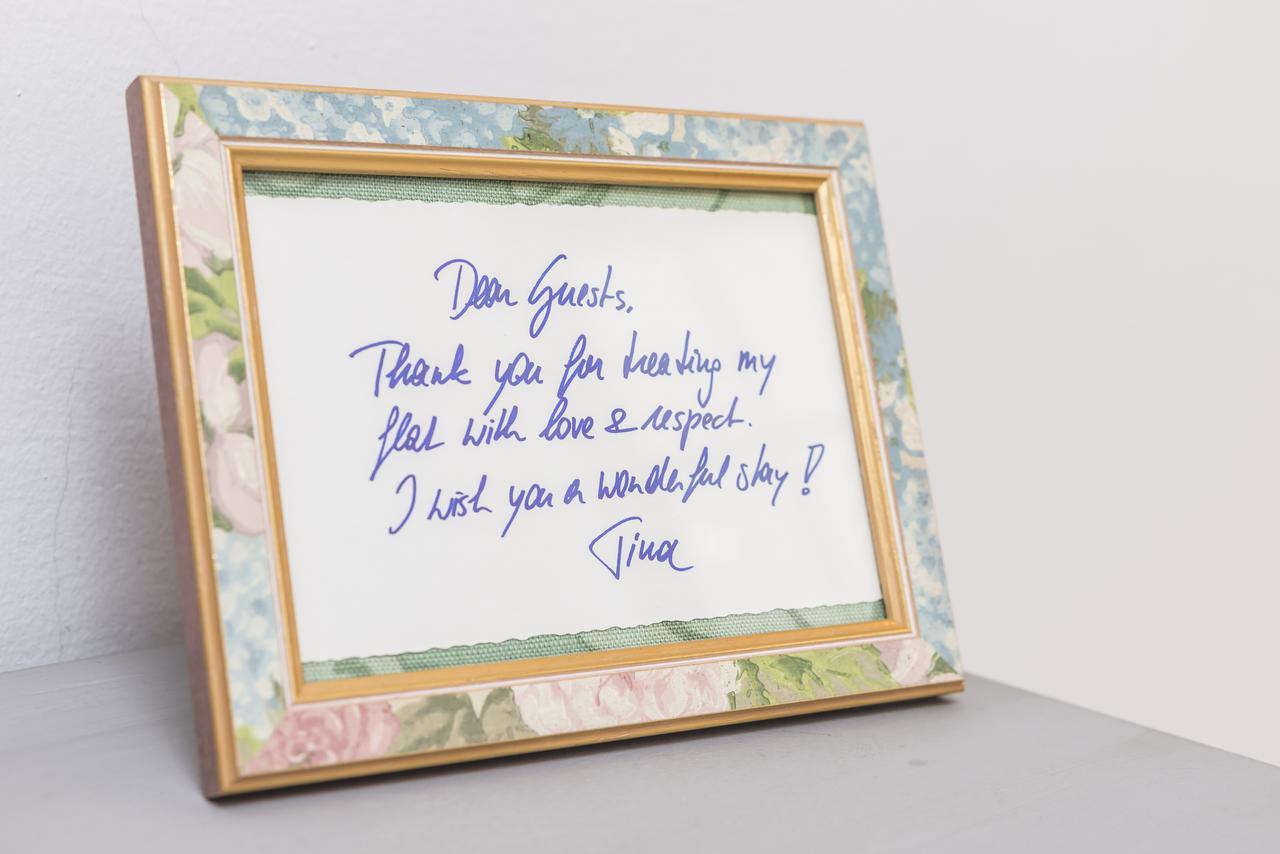 Dear Guests,
Thank you for treating my
flat with love & respect.
I wish you a wonderful stay!
Tina